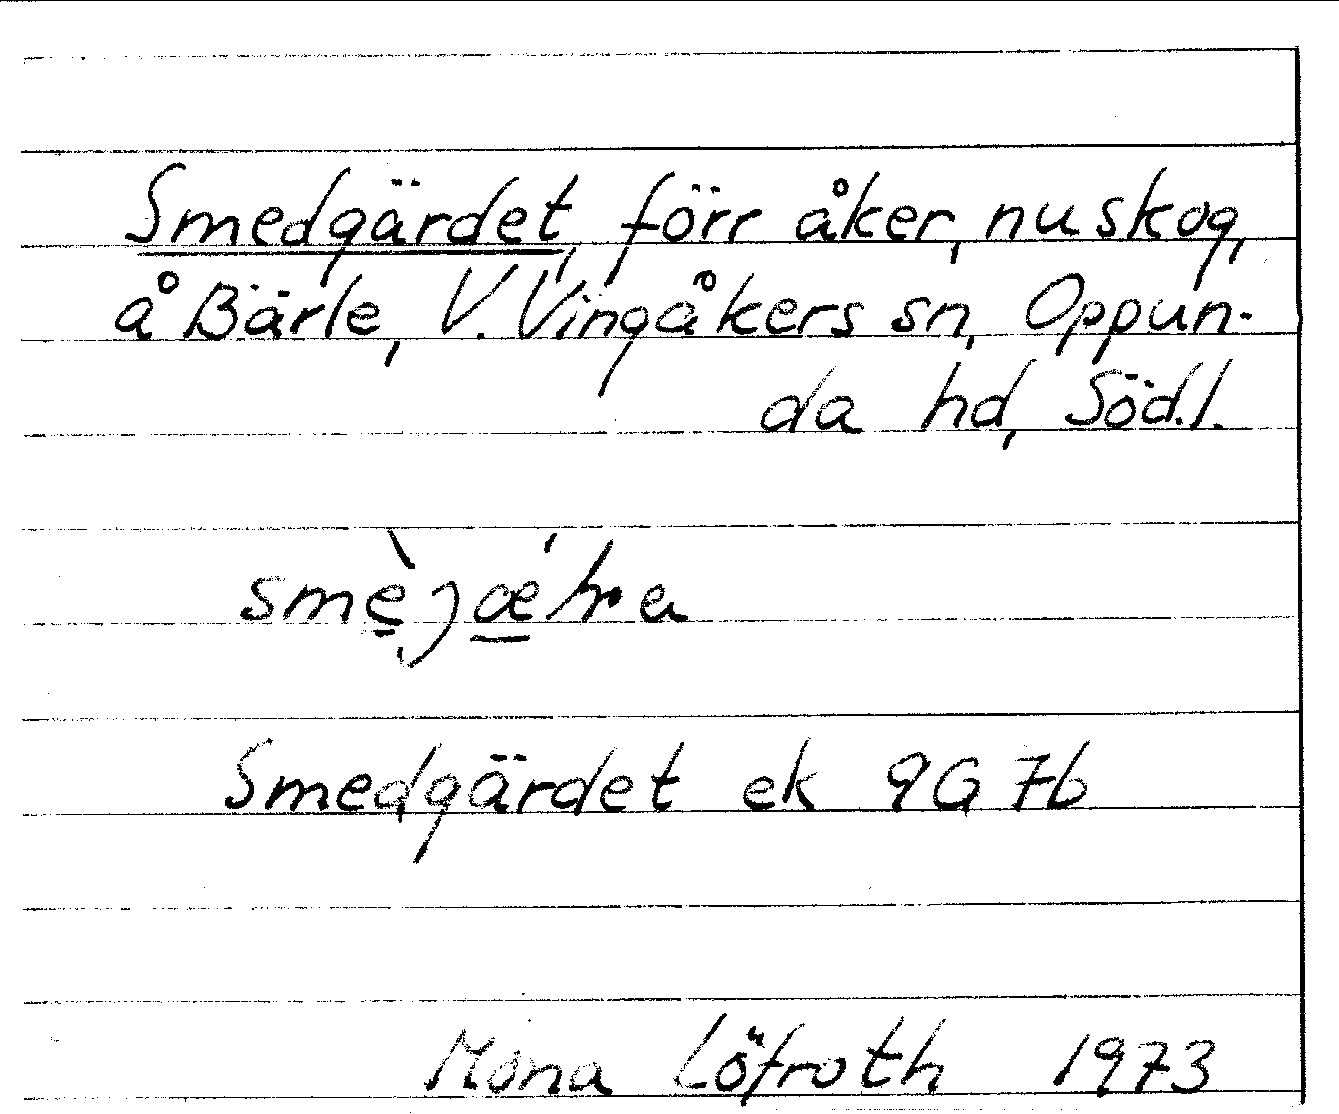 Smedgärdet, förr åker, nu skog,
å Bärle, V. Vingåkers sn, Oppun-
da hd, Söd.l.
Smedgärdet ek 9G 7b
Mona Löfroth 1973